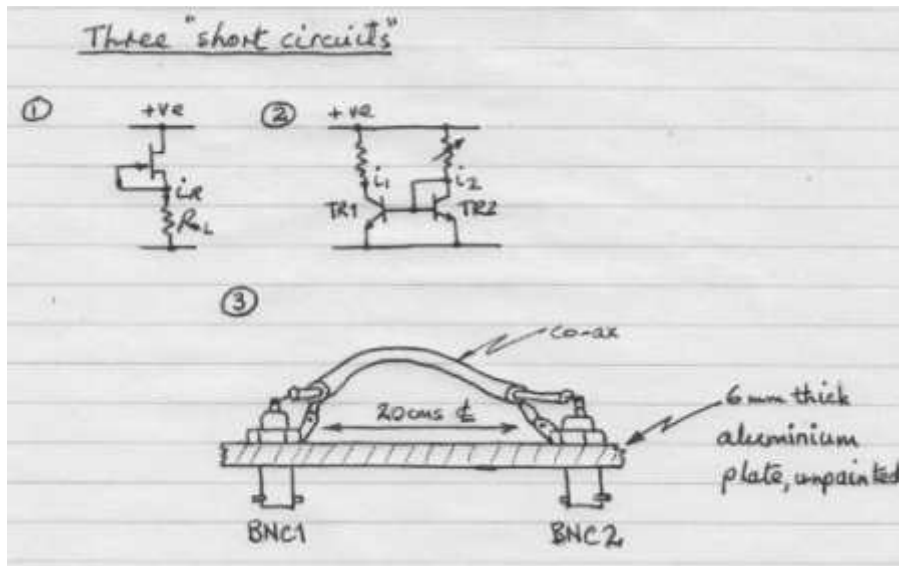 Three "short circuits"
① ②
+ve +ve
iR i1 i2
RL TR1 TR2
③
co-ax
20cms ℄
6mm thick
aluminium
plate, unpainted
BNC1 BNC2